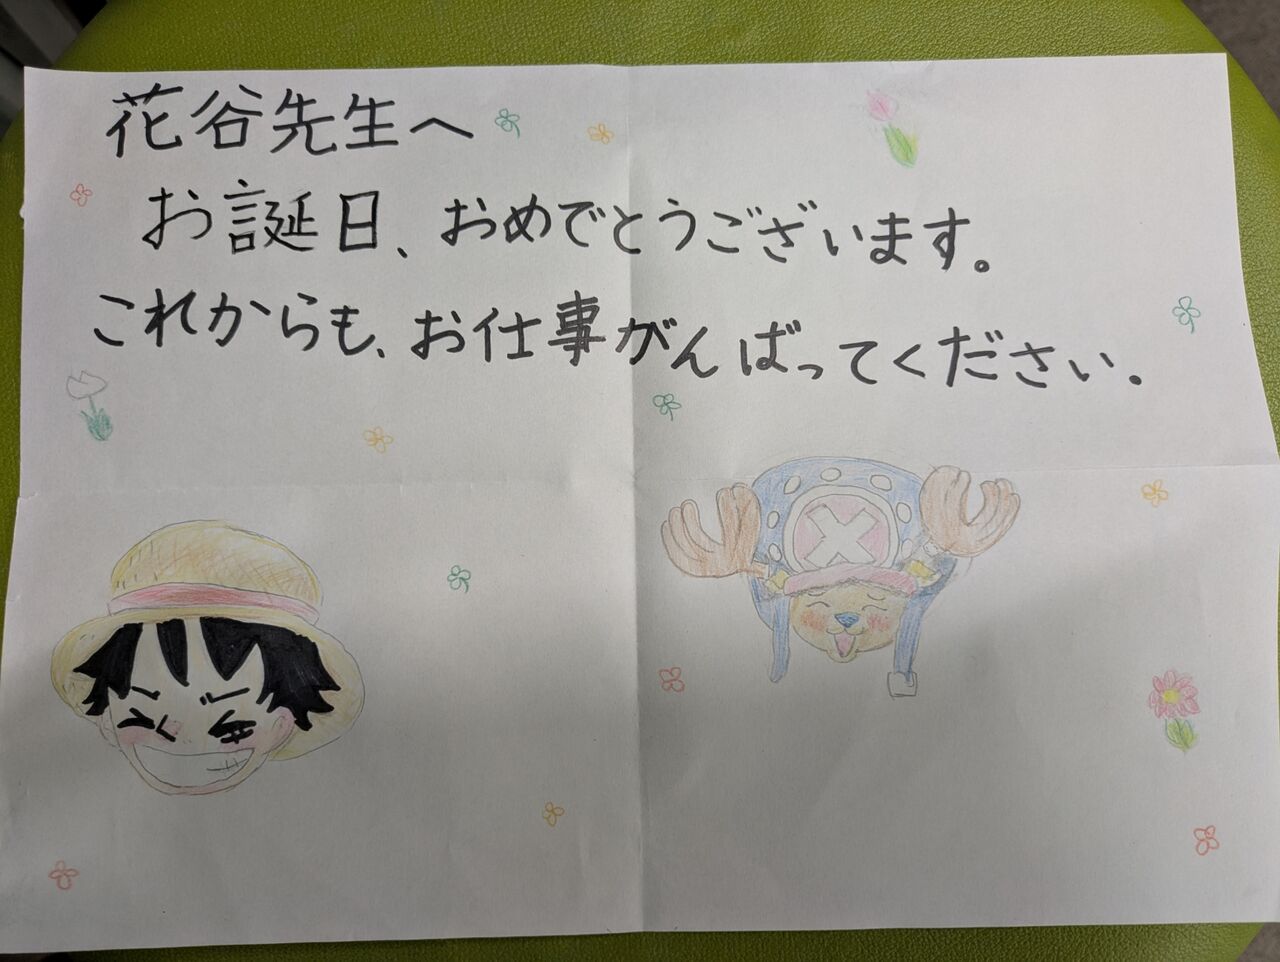 花谷先生へ
お誕日、おめでとうございます。
これからも、お仕事がんばってください.